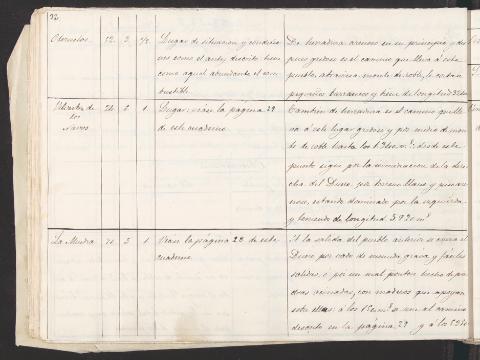 32
Oteruelos 12. 3 1/2 Lugar de situacion y condicio-
nes como el antes descrito bien
como aquel abundante el com-
bustible.
De herradura arenoso en su principio y des-
pues gredoso es el camino que lleva á este
pueblo, atraviesa monte de roble, le cortan
pequeños barrancos y tiene de longitud
de los
Naves 24 2 1 Lugar, vease la pagina 29
de este cuaderno.
Tambien de herradura es el camino que lle-
va á este lugar gredoso y por medio de mon-
te de roble hasta los desde este
punto sigue por la inmediacion de la dere-
cha del Duero, por terreno llano y
estando dominado por la izquierda
y teniendo de longitud 3920 mˢ
La Muedra 71 3 1 Vease la página 28 de este
cuaderno.
A la salida del pueblo anterior se cruza el
Duero por vado de menuda grava y faciles
salidas, ó por un mal ponton hecho de pie-
dras con maderos que apoyan
en ellas: á los se une al camino
descrito en la página 29 y á los